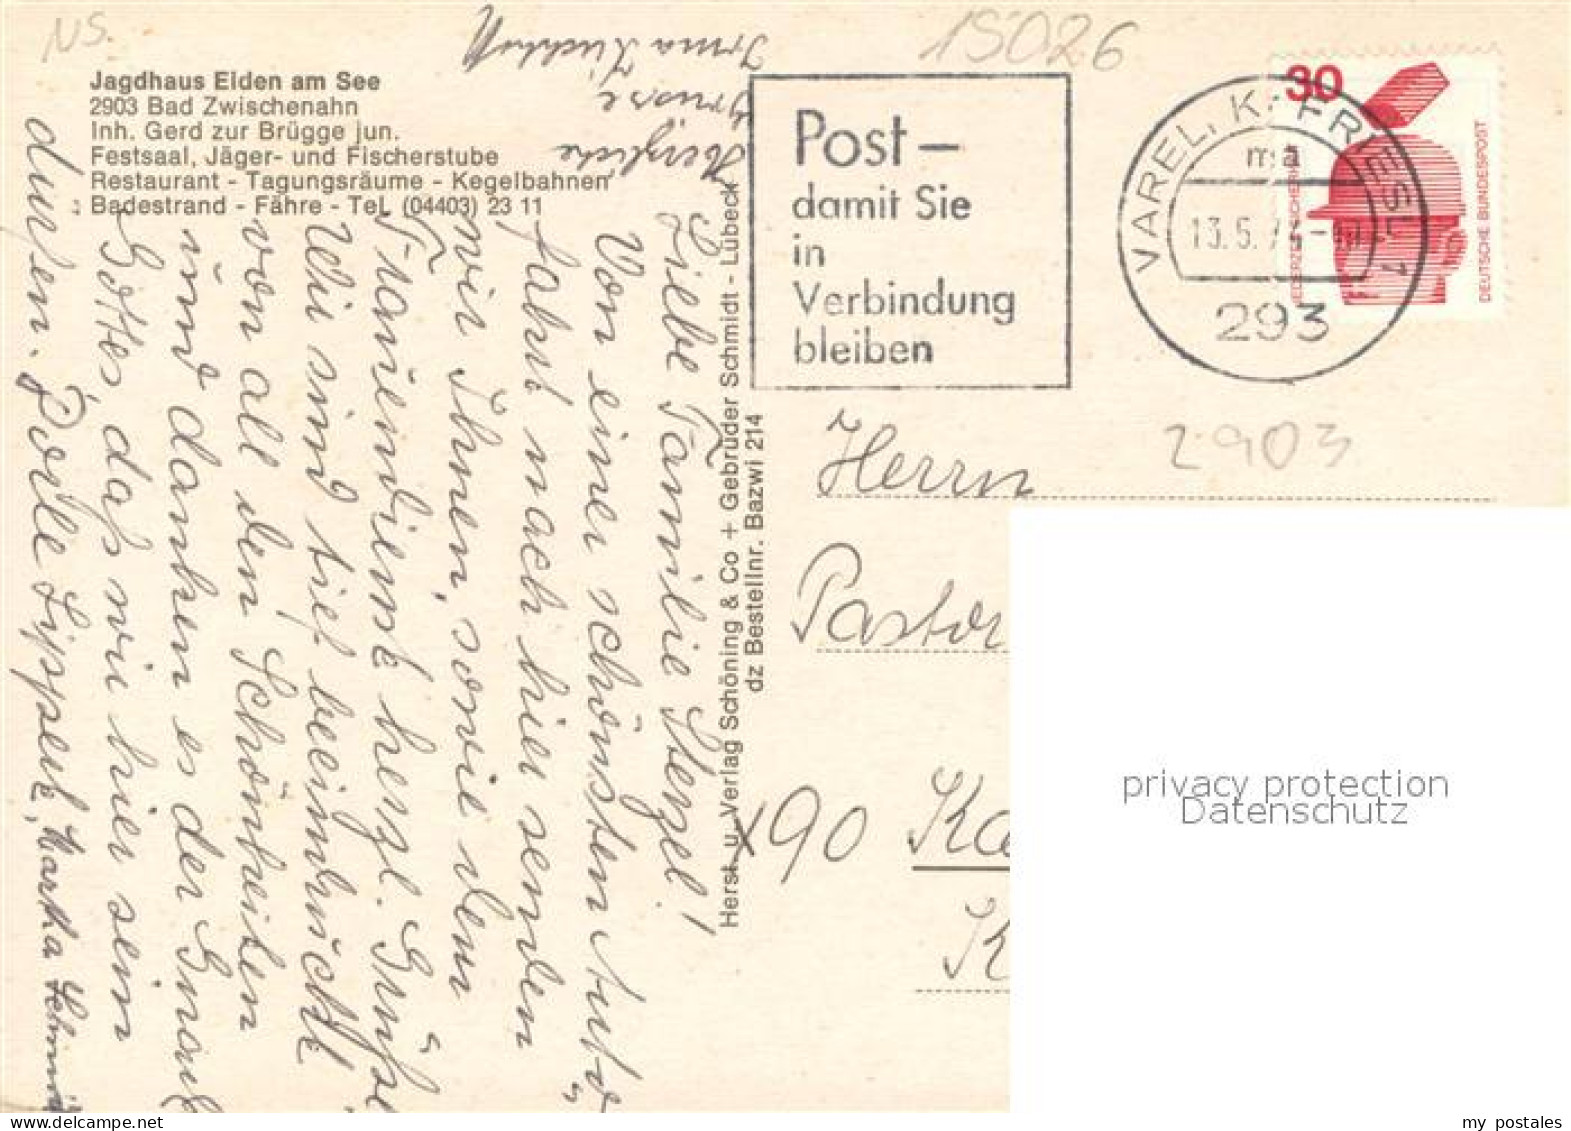 NS.
15026
Jagdhaus Eiden am See
2903 Bad Zwischenahn
Inh. Gerd zur Brügge jun.
Festsaal, Jäger- und Fischerstube
Restaurant - Tagungsräume - Kegelbahnen
Badestrand - Fähre - Tel. (04403) 23 11
Liebe Familie Stengel!
Von einer schönsten Auto-
fahrt nach hier senden
wir Ihnen, sowie dem
Frauendienst herzl. Grüße
Wir sind tief beeindruckt
von all den Schönheiten
und danken es der Gnade
Gottes, daß wir hier sein
durften. Martha
Herzliche
Grüsse
Irma
Herst. u. Verlag Schöning & Co + Gebrüder Schmidt - Lübeck
dz Bestellnr. Bazwi 214
Post –
damit Sie
in
Verbindung
bleiben
VAREL, Kr FRIESL 1
ma
13.5.
293
30
JEDERZEIT SICHERHEIT
DEUTSCHE BUNDESPOST
2903
Herrn
Pastor
X90 Ka
K
privacy protection
Datenschutz
www.delcampe.net
my_postales